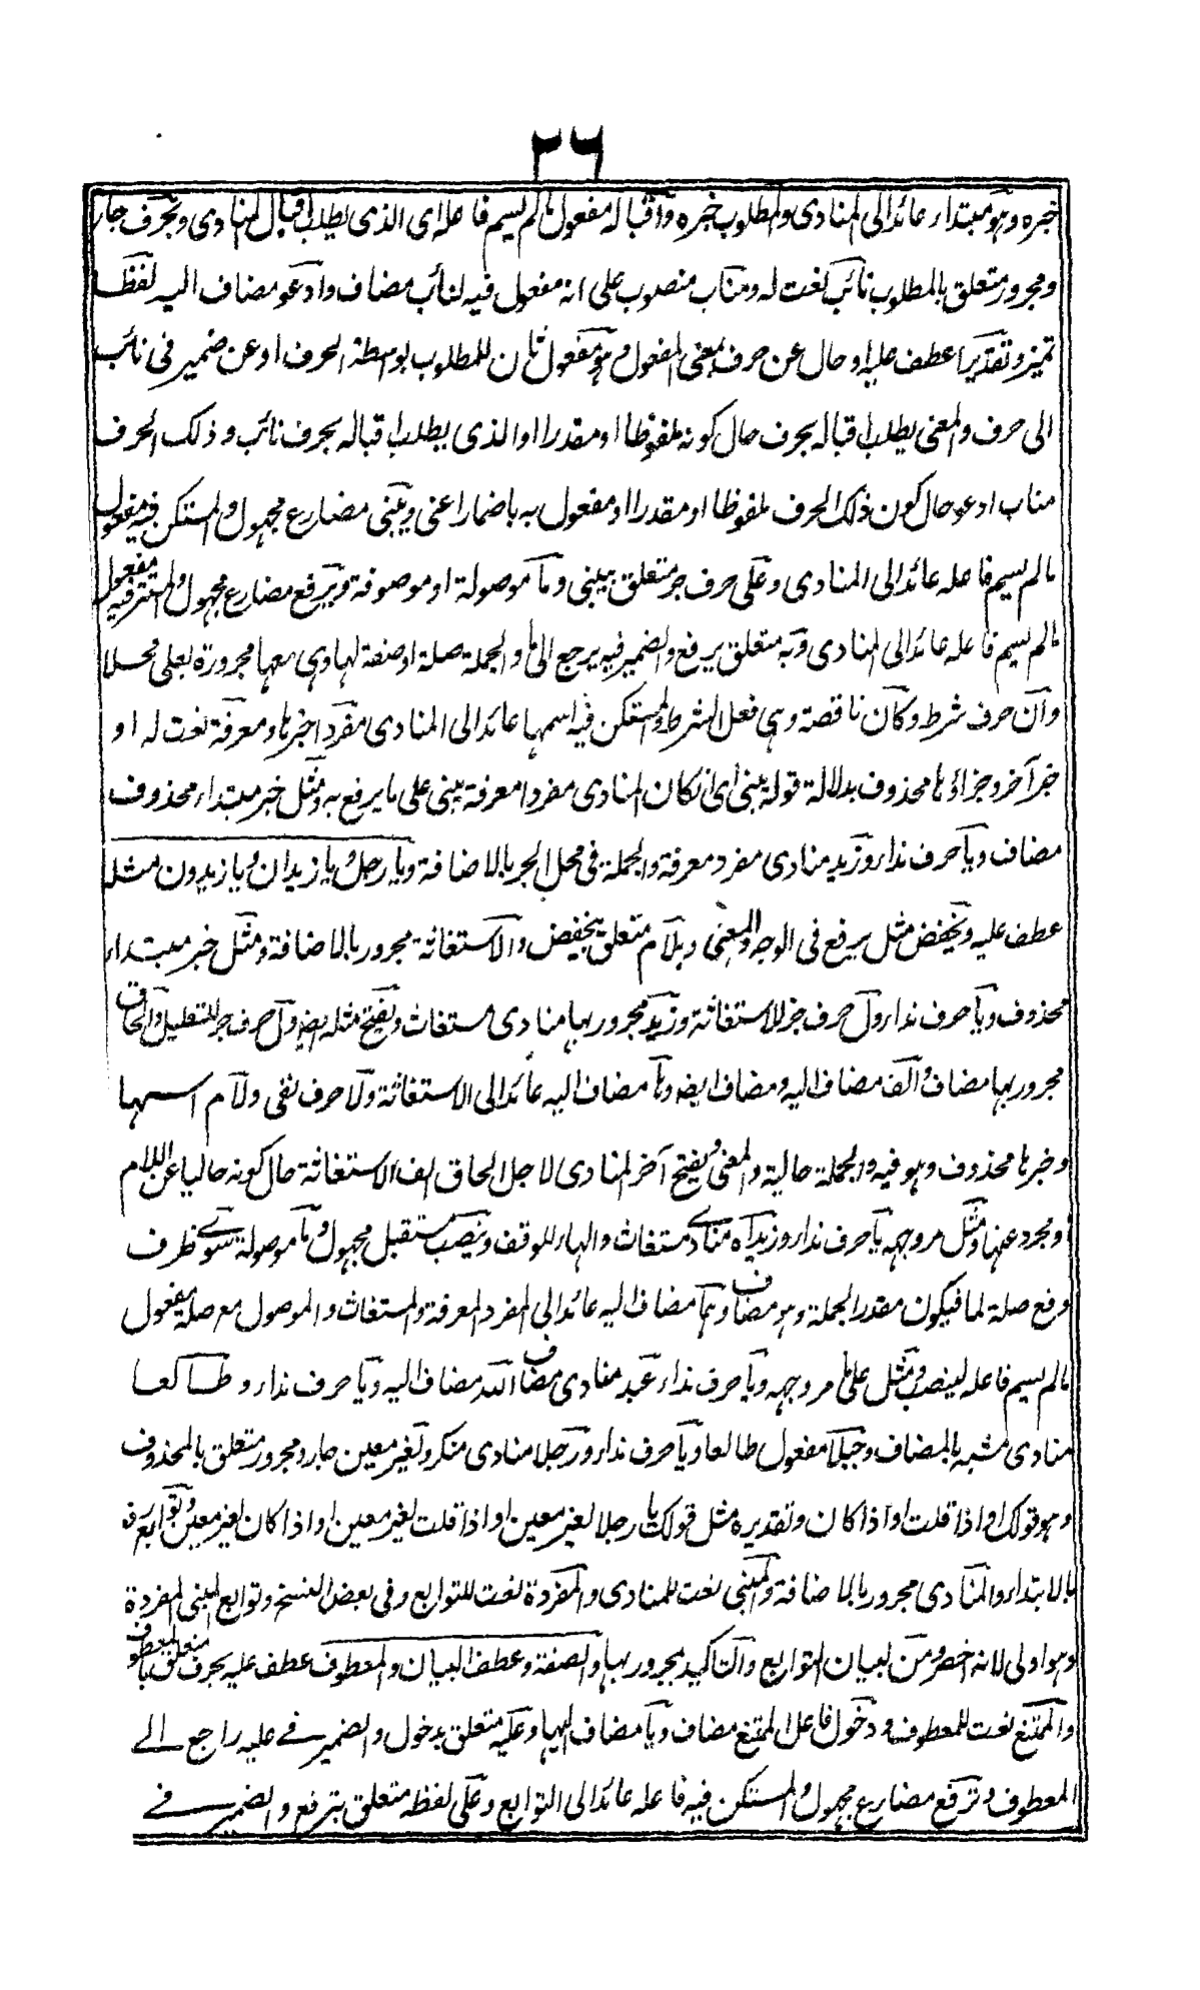 ٢٦
خبره وهو مبتداء عائد الى المنادى والمطلوب خبره واقباله مفعول مالم يسم فاعله اى الذى يطلب اقبال المنادى وبحرف جار
ومجرور متعلق بالمطلوب نائب نعت له ومناب منصوب على انه مفعول فيه لنائب مضاف وادعو مضاف اليه لفظا
تميز وتقديرا عطف عليه او حال عن حرف بمعنى المفعول وهو مفعول ثان للمطلوب بواسطة الحرف او عن ضمير فى نائب
الى حرف والمعنى يطلب اقباله بحرف حال كونه ملفوظا او مقدرا او الذى يطلب اقباله بحرف نائب وذلك الحرف
مناب ادعو حال كون ذلك الحرف ملفوظا او مقدرا او مفعول به باضمار اعنى ويبنى مضارع مجهول والمستكن فيه مفعول
مالم يسم فاعله عائد الى المنادى وعلى حرف جر متعلق بيبنى وما موصولة او موصوفة ويرفع مضارع مجهول والمستتر فيه مفعول
مالم يسم فاعله عائد الى المنادى وبه متعلق بيرفع والضمير فيه يرجع الى ما والجملة صلة او صفة لها وهى معها مجرورة بعلى محلا
وان حرف شرط وكان ناقصة وهى فعل الشرط والمستكن فيه اسمها عائد الى المنادى مفردا خبرها ومعرفة نعت له او
خبر آخر وجزاؤها محذوف بدلالة قوله يبنى اى ان كان المنادى مفردا معرفة يبنى على ما يرفع به ومثل خبر مبتداء محذوف
مضاف ويا حرف نداء وزيد منادى مفرد معرفة والجملة فى محل الجر بالاضافة ويا رجل ويا زيدان ويا زيدون مثل
عطف عليه ويخفض مثل يرفع فى الوجه والمعنى وبلام متعلق بيخفض والاستغاثة مجرور بالاضافة ومثل خبر مبتداء
محذوف ويا حرف نداء ول حرف جر للاستغاثة وزيد مجرور بها منادى مستغاث ويفتح مثله ايضا ول حرف جر للتعليل والحاق
مجرور بها مضاف والف مضاف اليه ومضاف ايضا وها مضاف اليه عائد الى الاستغاثة ولا حرف نفى ولام اسمها
وخبرها محذوف وهو فيه والجملة حالية والمعنى ويفتح آخر المنادى لاجل الحاق الف الاستغاثة حال كونه خاليا عن اللام
او مجرد عنها ومثل مر وجهه يا حرف نداء وزيداه منادى مستغاث والهاء للوقف وينصب مستقبل مجهول وما موصولة سوى ظرف
وقع صلة لما فيكون مقدر الجملة وهو مضاف وهما مضاف اليه عائد الى المفرد المعرفة والمستغاث والموصول مع صلة مفعول
مالم يسم فاعله لينصب ومثل على ما مر وجهه ويا حرف نداء عبد منادى مضاف الله مضاف اليه ويا حرف نداء وطالعا
منادى مشبه بالمضاف وجبلا مفعول طالعا ويا حرف نداء ورجلا منادى منكر ولغير معين جار ومجرور متعلق بالمحذوف
وهو قولك او اذا قلت او اذا كان وتقديره مثل قولك يا رجلا لغير معين او اذا قلت لغير معين او اذا كان لغير معين وتوابع رفع
بالابتداء والمنادى مجرور بالاضافة والمبنى نعت للمنادى والمفردة نعت للتوابع وفى بعض النسخ وتوابع المبنى المفردة
وهو اولى لانه اخصر ومن لبيان التوابع والتاكيد مجرور بها والصفة وعطف البيان والمعطوف عطف عليه بحرف متعلق بالمعطوف
والممتنع نعت للمعطوف ودخول فاعل الممتنع مضاف ويا مضاف اليها وعليه متعلق بدخول والضمير فى عليه راجع الى
المعطوف وترفع مضارع مجهول والمستكن فيه فاعله عائد الى التوابع وعلى لفظه متعلق بترفع والضمير فى